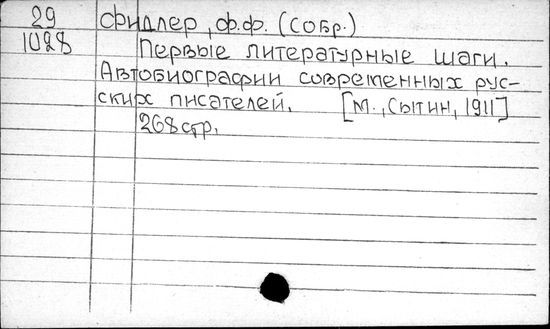 29 Фидлер, Ф.Ф. (собр.)
1028 Первые литературные шаги.
Автобиографии современных рус-
ских писателей. [М., Сытин, 1911]
268 стр.